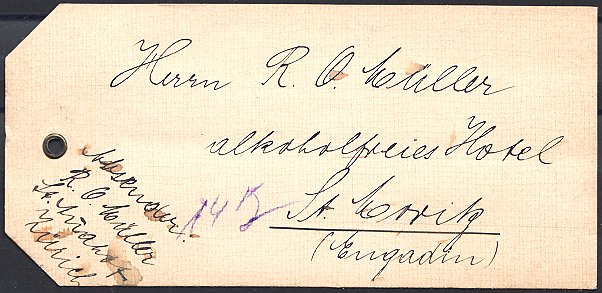 Herrn R. O. Müller
alkoholfreies Hotel
St. Moritz
(Engadin)
Absender:
R. O. Müller
St.
Zürich